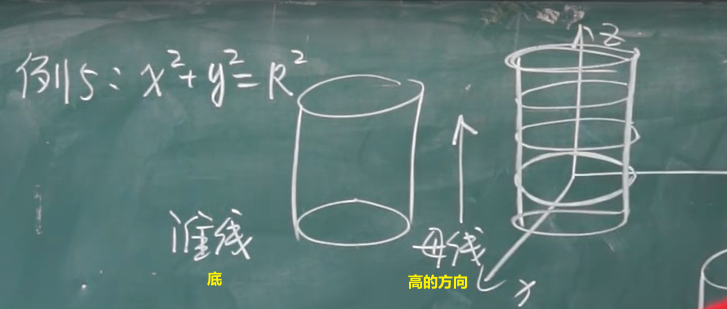 例5: x²+y²=R²
z
准线
底
母线
高的方向
x